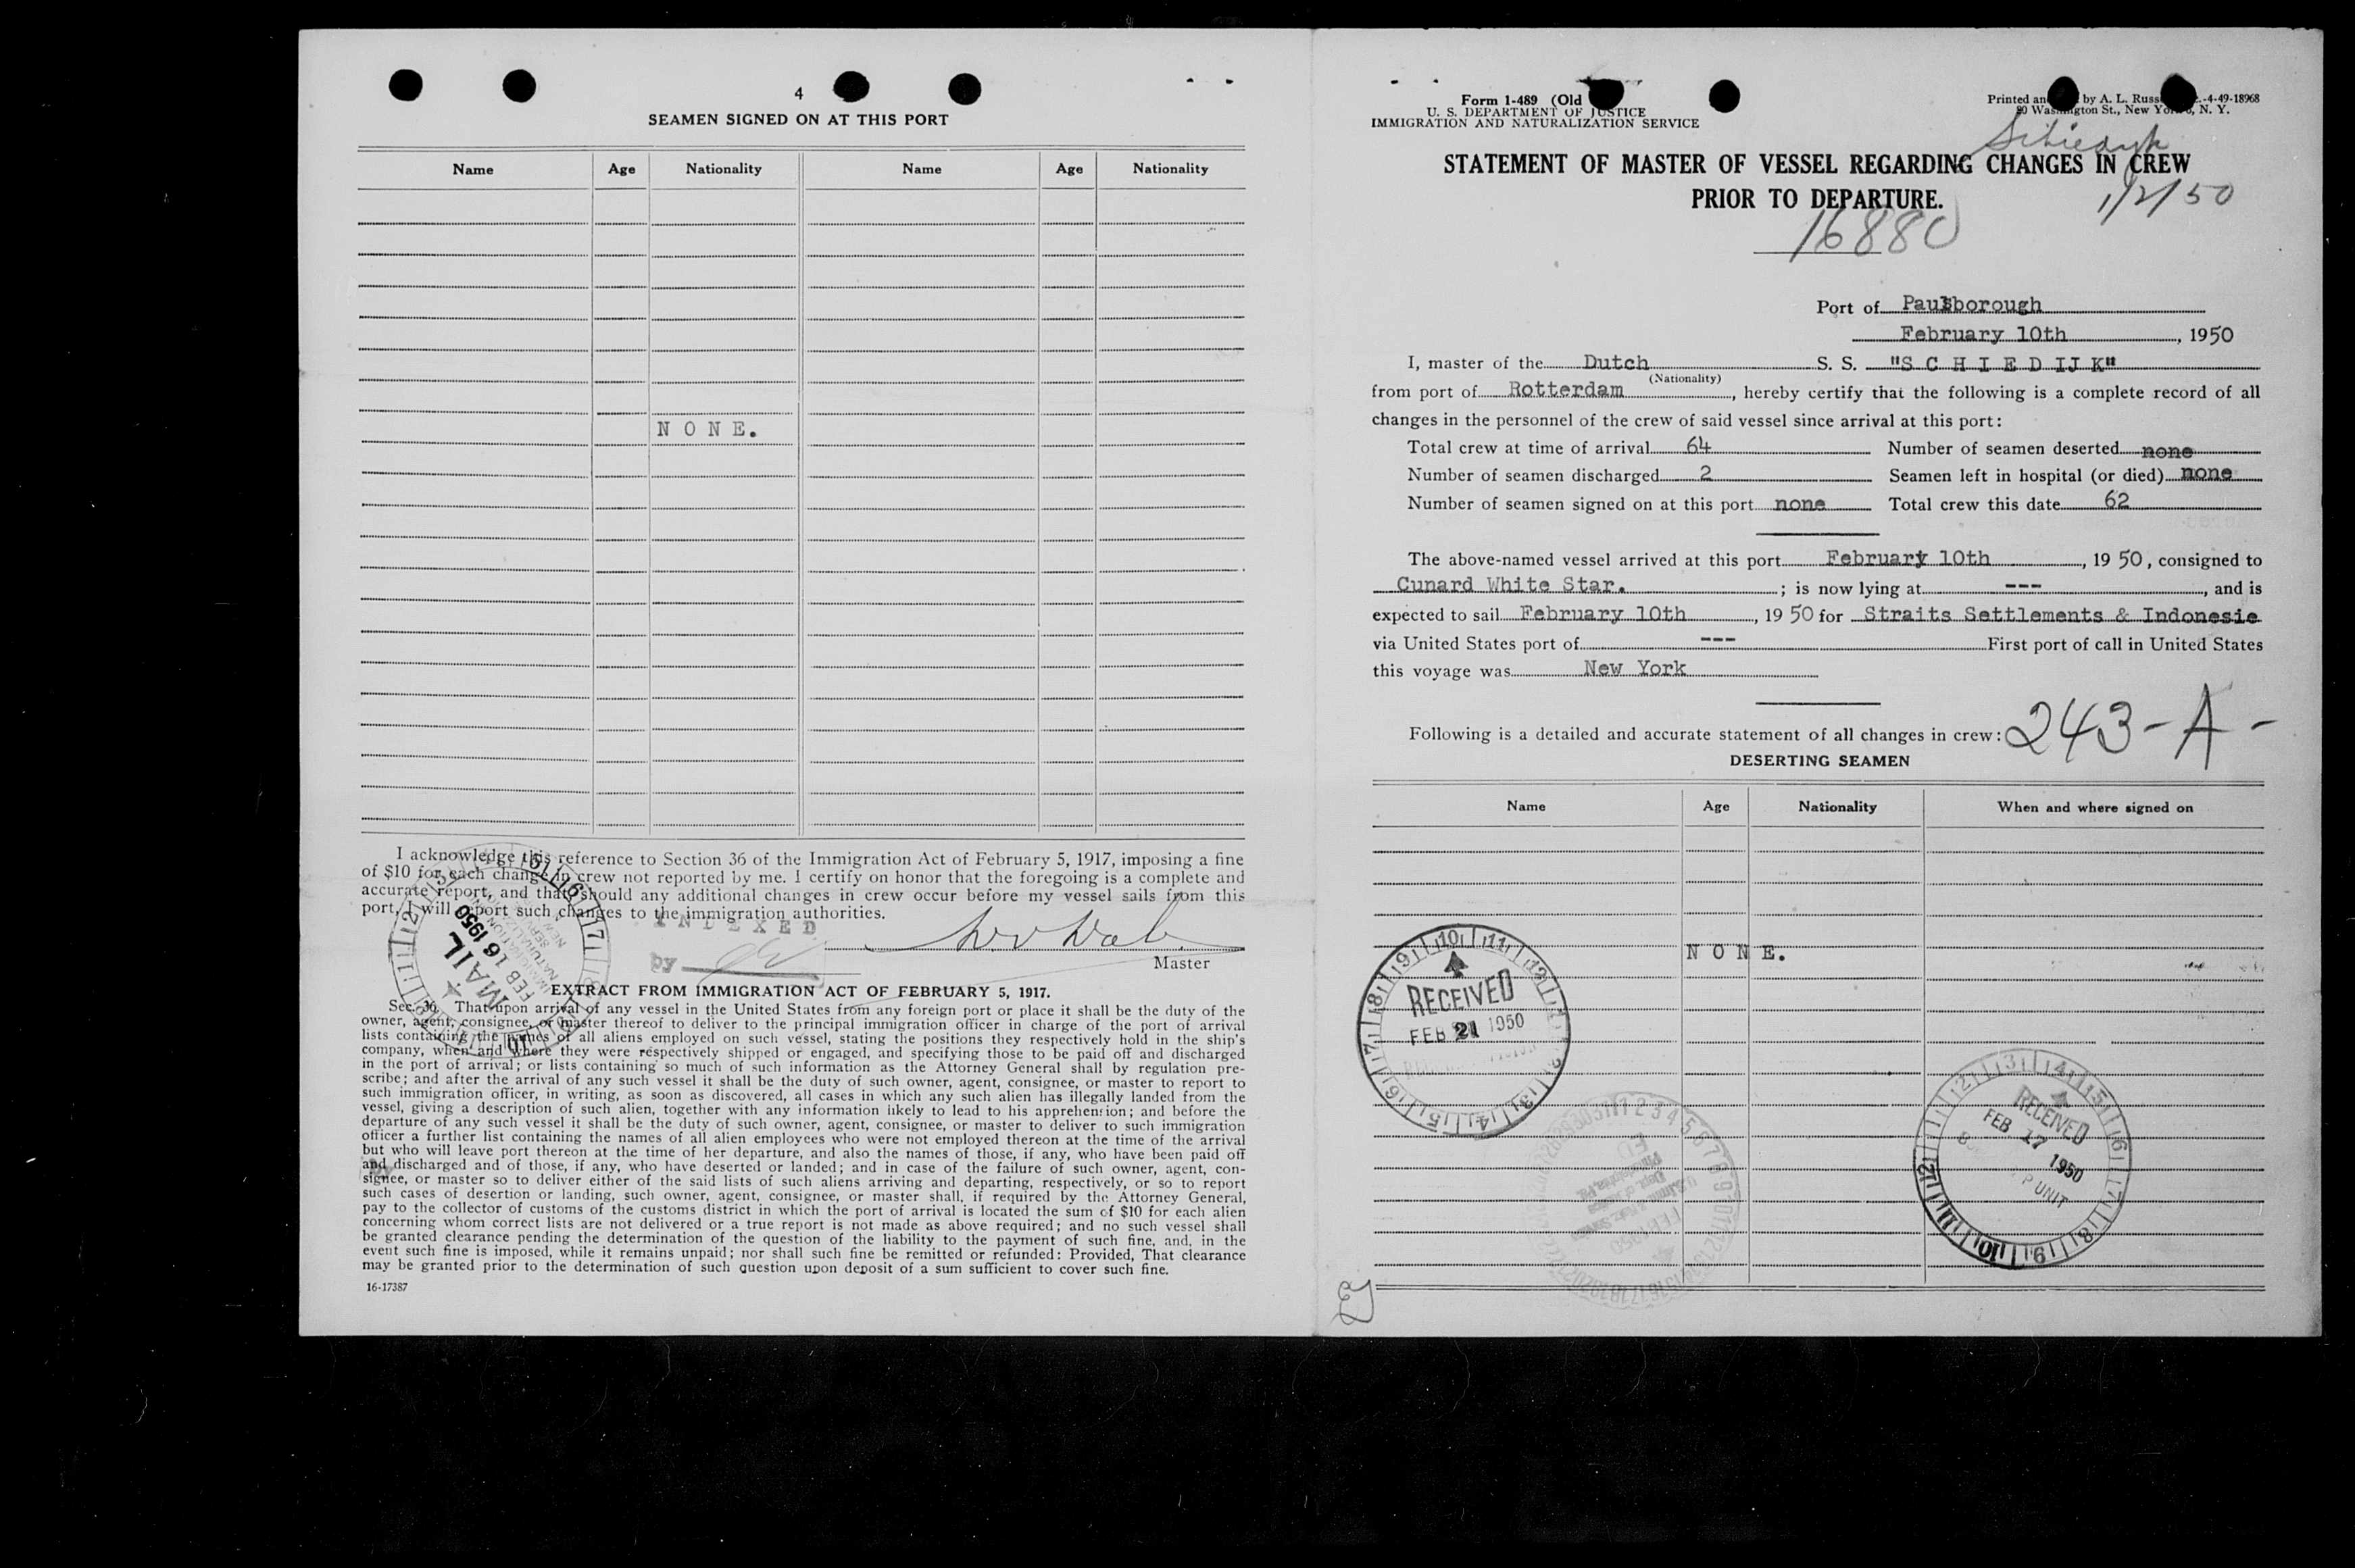 4
SEAMEN SIGNED ON AT THIS PORT
Name Age Nationality Name Age Nationality
N O N E.
I acknowledge this reference to Section 36 of the Immigration Act of February 5, 1917, imposing a fine
of $10 for each change in crew not reported by me. I certify on honor that the foregoing is a complete and
accurate report, and that should any additional changes in crew occur before my vessel sails from this
port, I will report such changes to the immigration authorities.
INDEXED
by
Master
MAIL
FEB 16 1950
EXTRACT FROM IMMIGRATION ACT OF FEBRUARY 5, 1917.
Sec. 36. That upon arrival of any vessel in the United States from any foreign port or place it shall be the duty of the
owner, agent, consignee, or master thereof to deliver to the principal immigration officer in charge of the port of arrival
lists containing the names of all aliens employed on such vessel, stating the positions they respectively hold in the ship's
company, when and where they were respectively shipped or engaged, and specifying those to be paid off and discharged
in the port of arrival; or lists containing so much of such information as the Attorney General shall by regulation pre-
scribe; and after the arrival of any such vessel it shall be the duty of such owner, agent, consignee, or master to report to
such immigration officer, in writing, as soon as discovered, all cases in which any such alien has illegally landed from the
vessel, giving a description of such alien, together with any information likely to lead to his apprehension; and before the
departure of any such vessel it shall be the duty of such owner, agent, consignee, or master to deliver to such immigration
officer a further list containing the names of all alien employees who were not employed thereon at the time of the arrival
but who will leave port thereon at the time of her departure, and also the names of those, if any, who have been paid off
and discharged and of those, if any, who have deserted or landed; and in case of the failure of such owner, agent, con-
signee, or master so to deliver either of the said lists of such aliens arriving and departing, respectively, or so to report
such cases of desertion or landing, such owner, agent, consignee, or master shall, if required by the Attorney General,
pay to the collector of customs of the customs district in which the port of arrival is located the sum of $10 for each alien
concerning whom correct lists are not delivered or a true report is not made as above required; and no such vessel shall
be granted clearance pending the determination of the question of the liability to the payment of such fine, and, in the
event such fine is imposed, while it remains unpaid; nor shall such fine be remitted or refunded: Provided, That clearance
may be granted prior to the determination of such question upon deposit of a sum sufficient to cover such fine.
16-17387
Form I-489 (Old
U. S. DEPARTMENT OF JUSTICE
IMMIGRATION AND NATURALIZATION SERVICE
Printed an by A. L. Russ -4-49-18968
80 Washington St., New York 6, N. Y.
Schiedyk
STATEMENT OF MASTER OF VESSEL REGARDING CHANGES IN CREW
PRIOR TO DEPARTURE.
1/2/50
16880
Port of Paulsborough
February 10th, 1950
I, master of the Dutch S. S. "S C H I E D IJ K"
(Nationality)
from port of Rotterdam, hereby certify that the following is a complete record of all
changes in the personnel of the crew of said vessel since arrival at this port:
Total crew at time of arrival 64 Number of seamen deserted none
Number of seamen discharged 2 Seamen left in hospital (or died) none
Number of seamen signed on at this port none Total crew this date 62
The above-named vessel arrived at this port February 10th, 19 50, consigned to
Cunard White Star. ; is now lying at ---, and is
expected to sail February 10th, 19 50 for Straits Settlements & Indonesie
via United States port of --- First port of call in United States
this voyage was New York
Following is a detailed and accurate statement of all changes in crew: 243-A-
DESERTING SEAMEN
Name Age Nationality When and where signed on
N O N E.
RECEIVED
FEB 21 1950
RECEIVED
FEB 17 1950
P UNIT